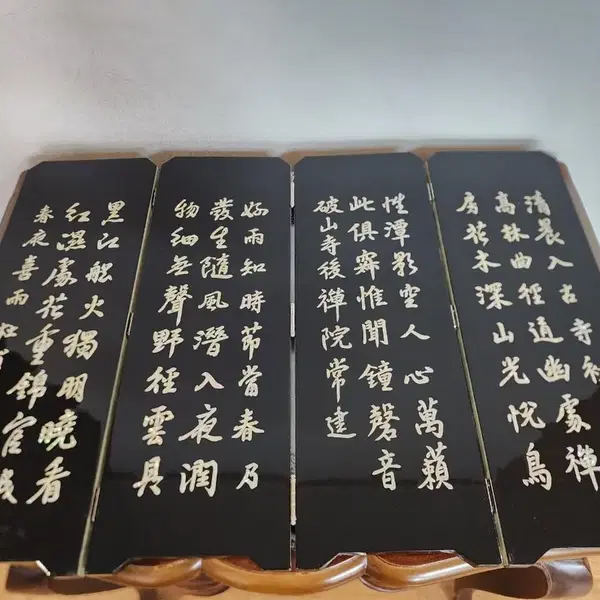 清晨入古寺初
高林曲徑道幽處禪
房花木深山光悅鳥
性潭影空人心萬籟
此俱寂惟聞鐘磬音
破山寺後禪院常建
好雨知時節當春乃
發生隨風潛入夜潤
物細无聲野徑雲具
黑江船火獨明曉看
紅濕處花重錦官城
春夜喜雨